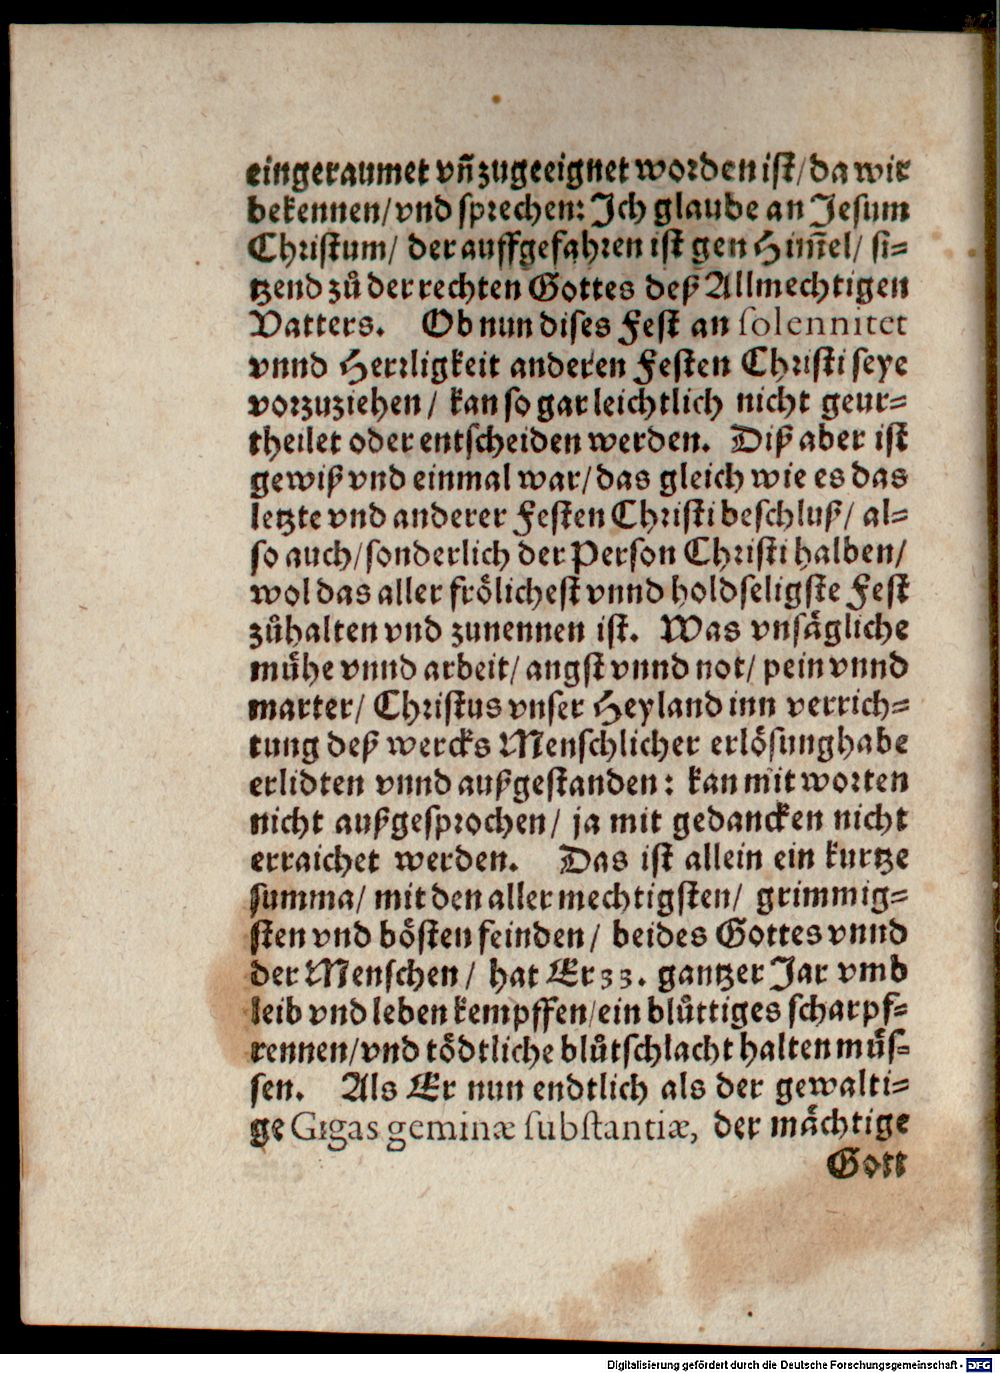 eingeraumet vñ zugeeignet worden ist/ da wir
bekennen/ vnd sprechen: Ich glaube an Jesum
Christum/ der auffgefahren ist gen Him̃el/ si-
tzend zů der rechten Gottes deß Allmechtigen
Vatters. Ob nun dises Fest an solennitet
vnnd Herrligkeit anderen Festen Christi seye
vorzuziehen/ kan so gar leichtlich nicht geur-
theilet oder entscheiden werden. Diß aber ist
gewiß vnd einmal war/ das gleich wie es das
letzte vnd anderer Festen Christi beschluß/ al-
so auch/ sonderlich der Person Christi halben/
wol das aller frölichest vnnd holdseligste Fest
zůhalten vnd zunennen ist. Was vnsägliche
mühe vnnd arbeit/ angst vnnd not/ pein vnnd
marter/ Christus vnser Heyland inn verrich-
tung deß wercks Menschlicher erlösung habe
erlidten vnnd außgestanden: kan mit worten
nicht außgesprochen/ ja mit gedancken nicht
erraichet werden. Das ist allein ein kurtze
summa/ mit den aller mechtigsten/ grimmig-
sten vnd bösten feinden/ beides Gottes vnnd
der Menschen/ hat Er 33. gantzer Jar vmb
leib vnd leben kempffen/ ein blůttiges scharpf-
rennen/ vnd tödtliche blůtschlacht halten müs-
sen. Als Er nun endtlich als der gewalti-
ge Gigas geminæ substantiæ, der mächtige
Gott
Digitalisierung gefördert durch die Deutsche Forschungsgemeinschaft - DFG